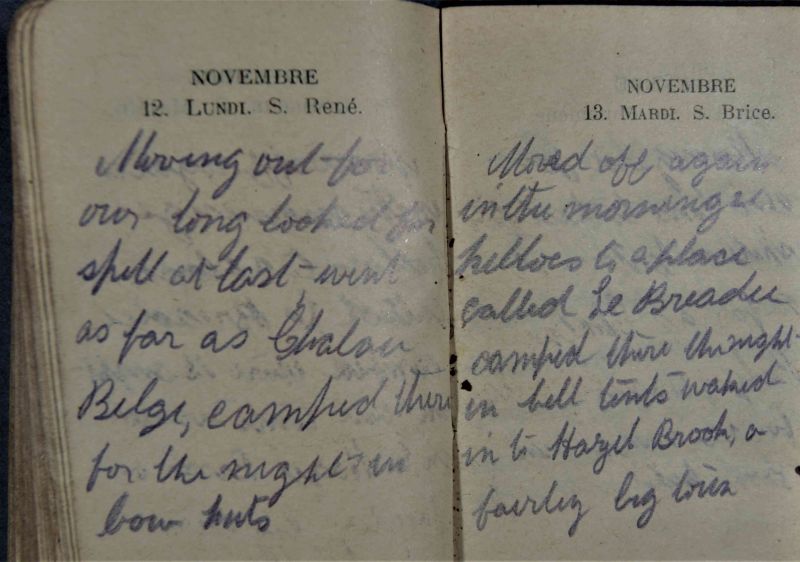 NOVEMBRE
12. LUNDI. S. René.
Moving out for
our long looked for
spell at last went
as far as
Belge, camped there
for the night in
bow huts
NOVEMBRE
13. MARDI. S. Brice.
Moved off again
in the morning
to a place
called Le
camped there
in bell tents walked
in to Hazel Brook, a
fairley big town